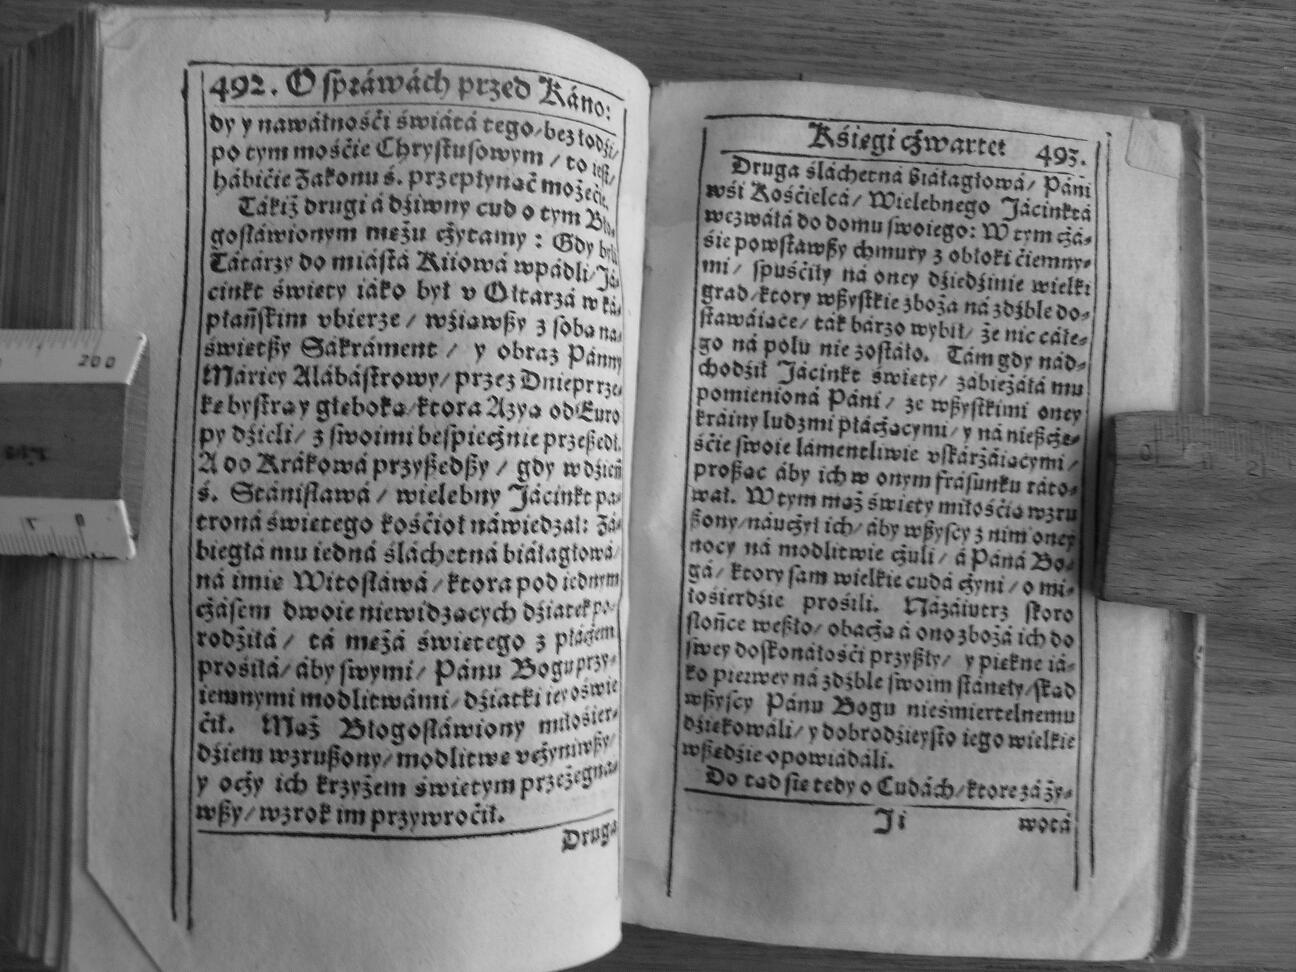 492. O spráwách przed Káno:
dy y nawáłnośći świátá tego/ bez łodźi/
po tym mośćie Chrystusowym / to iest/
hábićie Zakonu ś. przepłynąć możećie.
Tákiż drugi á dźiwny cud o tym Bło-
gosłáwionym mężu cżytamy : Gdy byli
Tátárzy do miástá Kiiowá wpádli/ Já-
cinkt święty iáko był v Ołtarzá w ká-
płáńskim vbierze / wźiąwßy z sobą na-
świętßy Sákráment / y obraz Pánny
Máriey Alábástrowy/ przez Dniepr rze-
kę bystrą y głęboką/ ktora Azyą od Euro
py dźieli/ z swoimi bespiecżnie przeßedł.
A do Krákowá przyßedßy / gdy w dźień
ś. Stánisławá / wielebny Jácinkt pa-
troná świętego kośćioł náwiedzał: Zá-
biegłá mu iedná śláchetná białagłowá/
ná imię Witosłáwá / ktora pod iednym
cżásem dwoie niewidzących dźiatek po-
rodźiłá / tá mężá świętego z płácżem
prośiłá/ áby swymi/ Pánu Bogu przy-
iemnymi modlitwámi/ dźiatki iey oświe
ćił. Mąż Błogosłáwiony miłośier-
dźiem wzrußony/ modlitwę vcżyniwßy/
y ocży ich krzyżem świętym przeżegna-
wßy/ wzrok im przywroćił.
Druga
Kśięgi cżwartey 493.
Druga śláchetná białagłowá/ Páni
wśi Kośćielcá/ Wielebnego Jácinktá
wezwáłá do domu swoiego: W tym cżá-
śie powstawßy chmury z obłoki ćiemny-
mi/ spuśćiły ná oney dźiedźinie wielki
grad/ ktory wßystkie zboża ná zdźble do-
stawáiące/ ták bárzo wybił/ że nic cáłe-
go ná polu nie zostáło. Tám gdy nád-
chodźił Jácinkt święty/ zábieżáłá mu
pomienioná Páni/ ze wßystkimi oney
kráiny ludzmi płácżącymi/ y ná nießcżę-
śćie swoie lámentliwie vskárżáiącymi/
proßąc áby ich w onym frásunku ráto-
wał. W tym mąż święty miłośćią wzru
ßony/ náucżył ich/ áby wßyscy z nim oney
nocy ná modlitwie cżuli/ á Páná Bo-
gá/ ktory sam wielkie cudá cżyni/ o mi-
łośierdźie prośili. Názáiutrz skoro
słońce weßło/ obacżą á ono zbożá ich do
swey doskonáłośći przyßły/ y piękne iá-
ko pierwey ná zdźble swoim stánęły/ skąd
wßyscy Pánu Bogu nieśmiertelnemu
dźiękowáli/ y dobrodźieystwo iego wielkie
wßędźie opowiádáli.
Do tąd się tedy o Cudách/ ktore zá ży-
Ji wotá